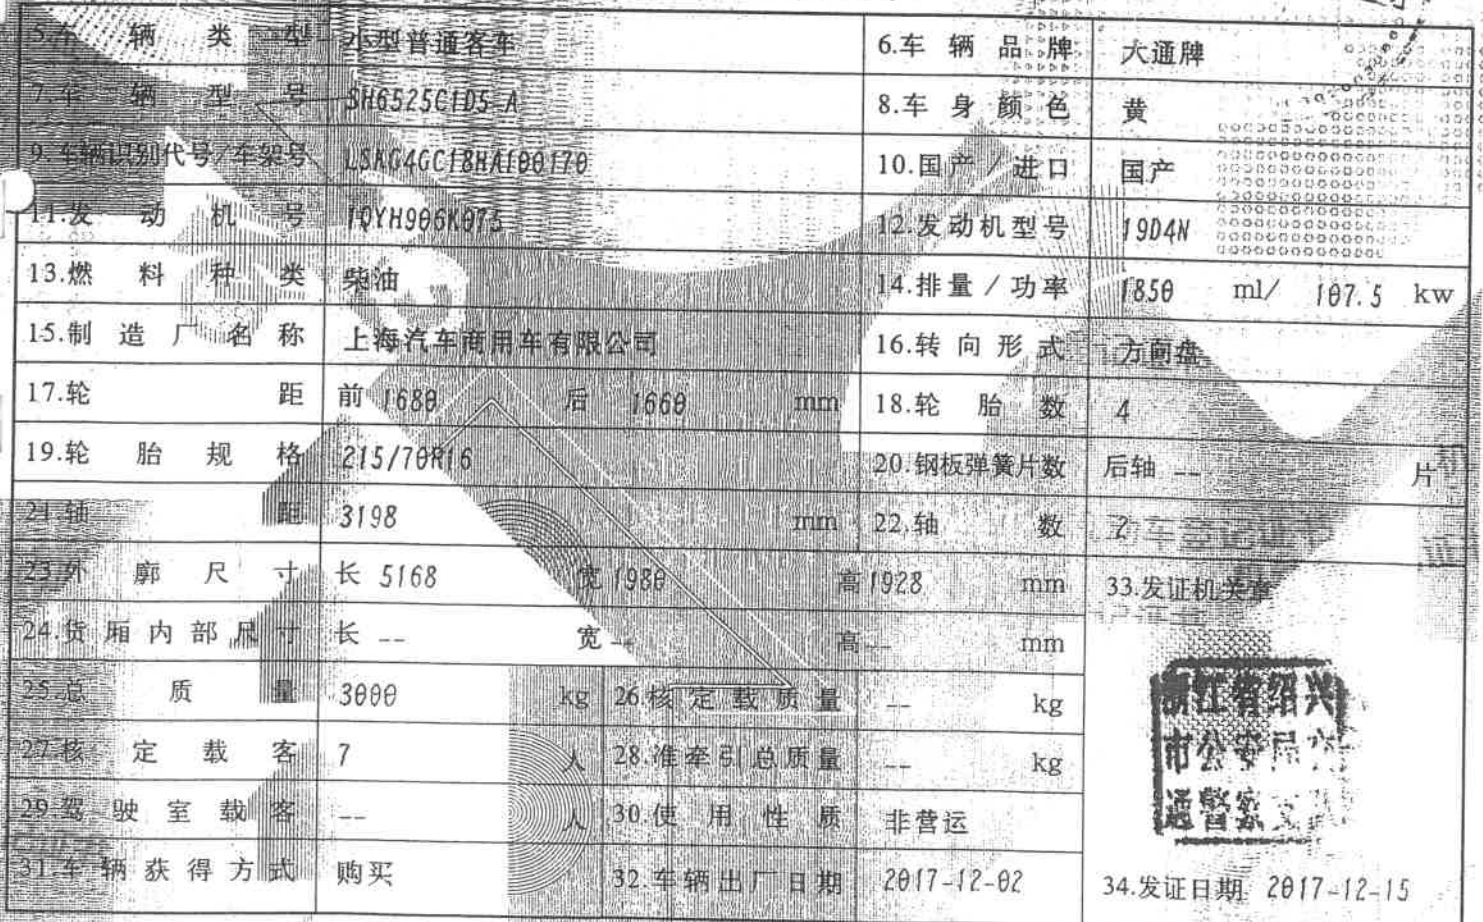 5.车辆类型 小型普通客车 6.车辆品牌 大通牌
7.车辆型号 SH6525C1D5-A 8.车身颜色 黄
9.车辆识别代号/车架号 LSKG4GC18HA100170 10.国产/进口 国产
11.发动机号 1QYH906K075 12.发动机型号 19D4N
13.燃料种类 柴油 14.排量/功率 1850 ml/ 107.5 kw
15.制造厂名称 上海汽车商用车有限公司 16.转向形式 方向盘
17.轮距 前 1680 后 1660 mm 18.轮胎数 4
19.轮胎规格 215/70R16 20.钢板弹簧片数 后轴 -- 片
21.轴距 3198 mm 22.轴数 2
23.外廓尺寸 长 5168 宽 1980 高 1928 mm 33.发证机关章
24.货厢内部尺寸 长 -- 宽 -- 高 -- mm
25.总质量 3000 kg 26.核定载质量 -- kg
27.核定载客 7 人 28.准牵引总质量 -- kg
29.驾驶室载客 -- 人 30.使用性质 非营运
31.车辆获得方式 购买 32.车辆出厂日期 2017-12-02 34.发证日期 2017-12-15
浙江省绍兴
市公安局交
通警察支队